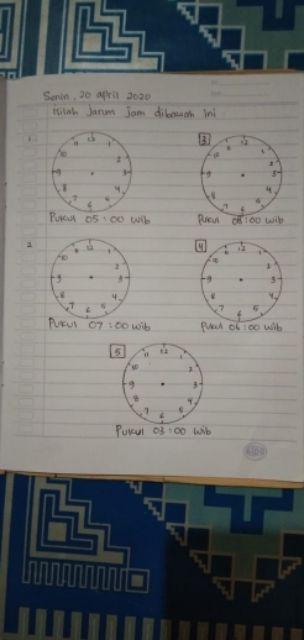 Senin, 20 april 2020
Kilah Jarum jam dibawah ini
1
12 1 2 3 4 5 6 7 8 9 10 11
Pukul 05:00 wib
3
12 1 2 3 4 5 6 7 8 9 10 11
Pukul 08:00 wib
2
12 1 2 3 4 5 6 7 8 9 10 11
Pukul 07:00 wib
4
12 1 2 3 4 5 6 7 8 9 10 11
Pukul 06:00 wib
5
12 1 2 3 4 5 6 7 8 9 10 11
Pukul 03:00 wib